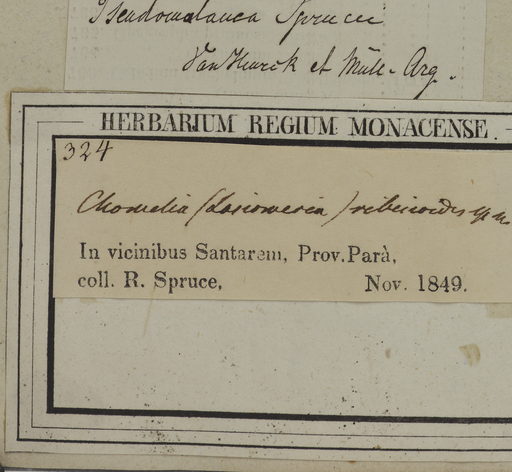 Pseudomalanea Sprucei
Van Heurck et Müll-Arg.
HERBARIUM REGIUM MONACENSE.
324
Chomelia (Lasiomeria) ribesioides sp. n.
In vicinibus Santarem, Prov. Parà,
coll. R. Spruce, Nov. 1849.